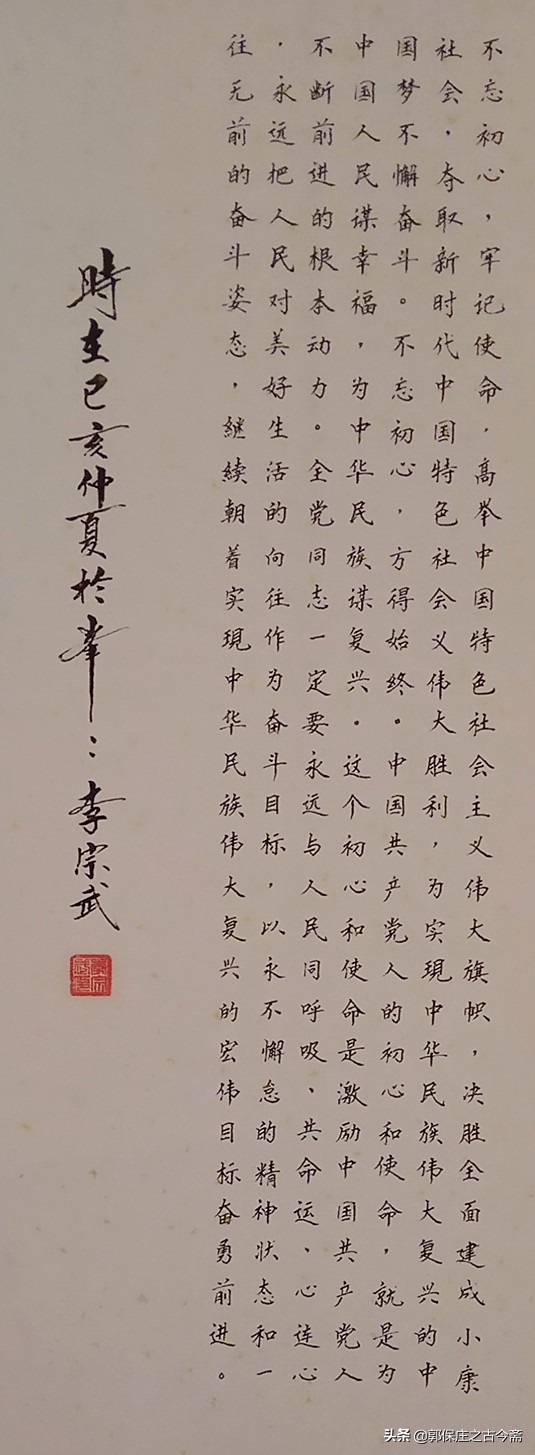 不忘初心，牢记使命，高举中国特色社会主义伟大旗帜，决胜全面建成小康
社会，夺取新时代中国特色社会义伟大胜利，为实現中华民族伟大复兴的中
国梦不懈奋斗。不忘初心，方得始终。中国共产党人的初心和使命，就是为
中国人民谋幸福，为中华民族谋复兴。这个初心和使命是激励中国共产党人
不断前进的根本动力。全党同志一定要永远与人民同呼吸、共命运、心连心
，永远把人民对美好生活的向往作为奋斗目标，以永不懈怠的精神状态和一
往无前的奋斗姿态，继续朝着实現中华民族伟大复兴的宏伟目标奋勇前进。
時在己亥仲夏於李宗武
头条 @郭保庄之古今斋